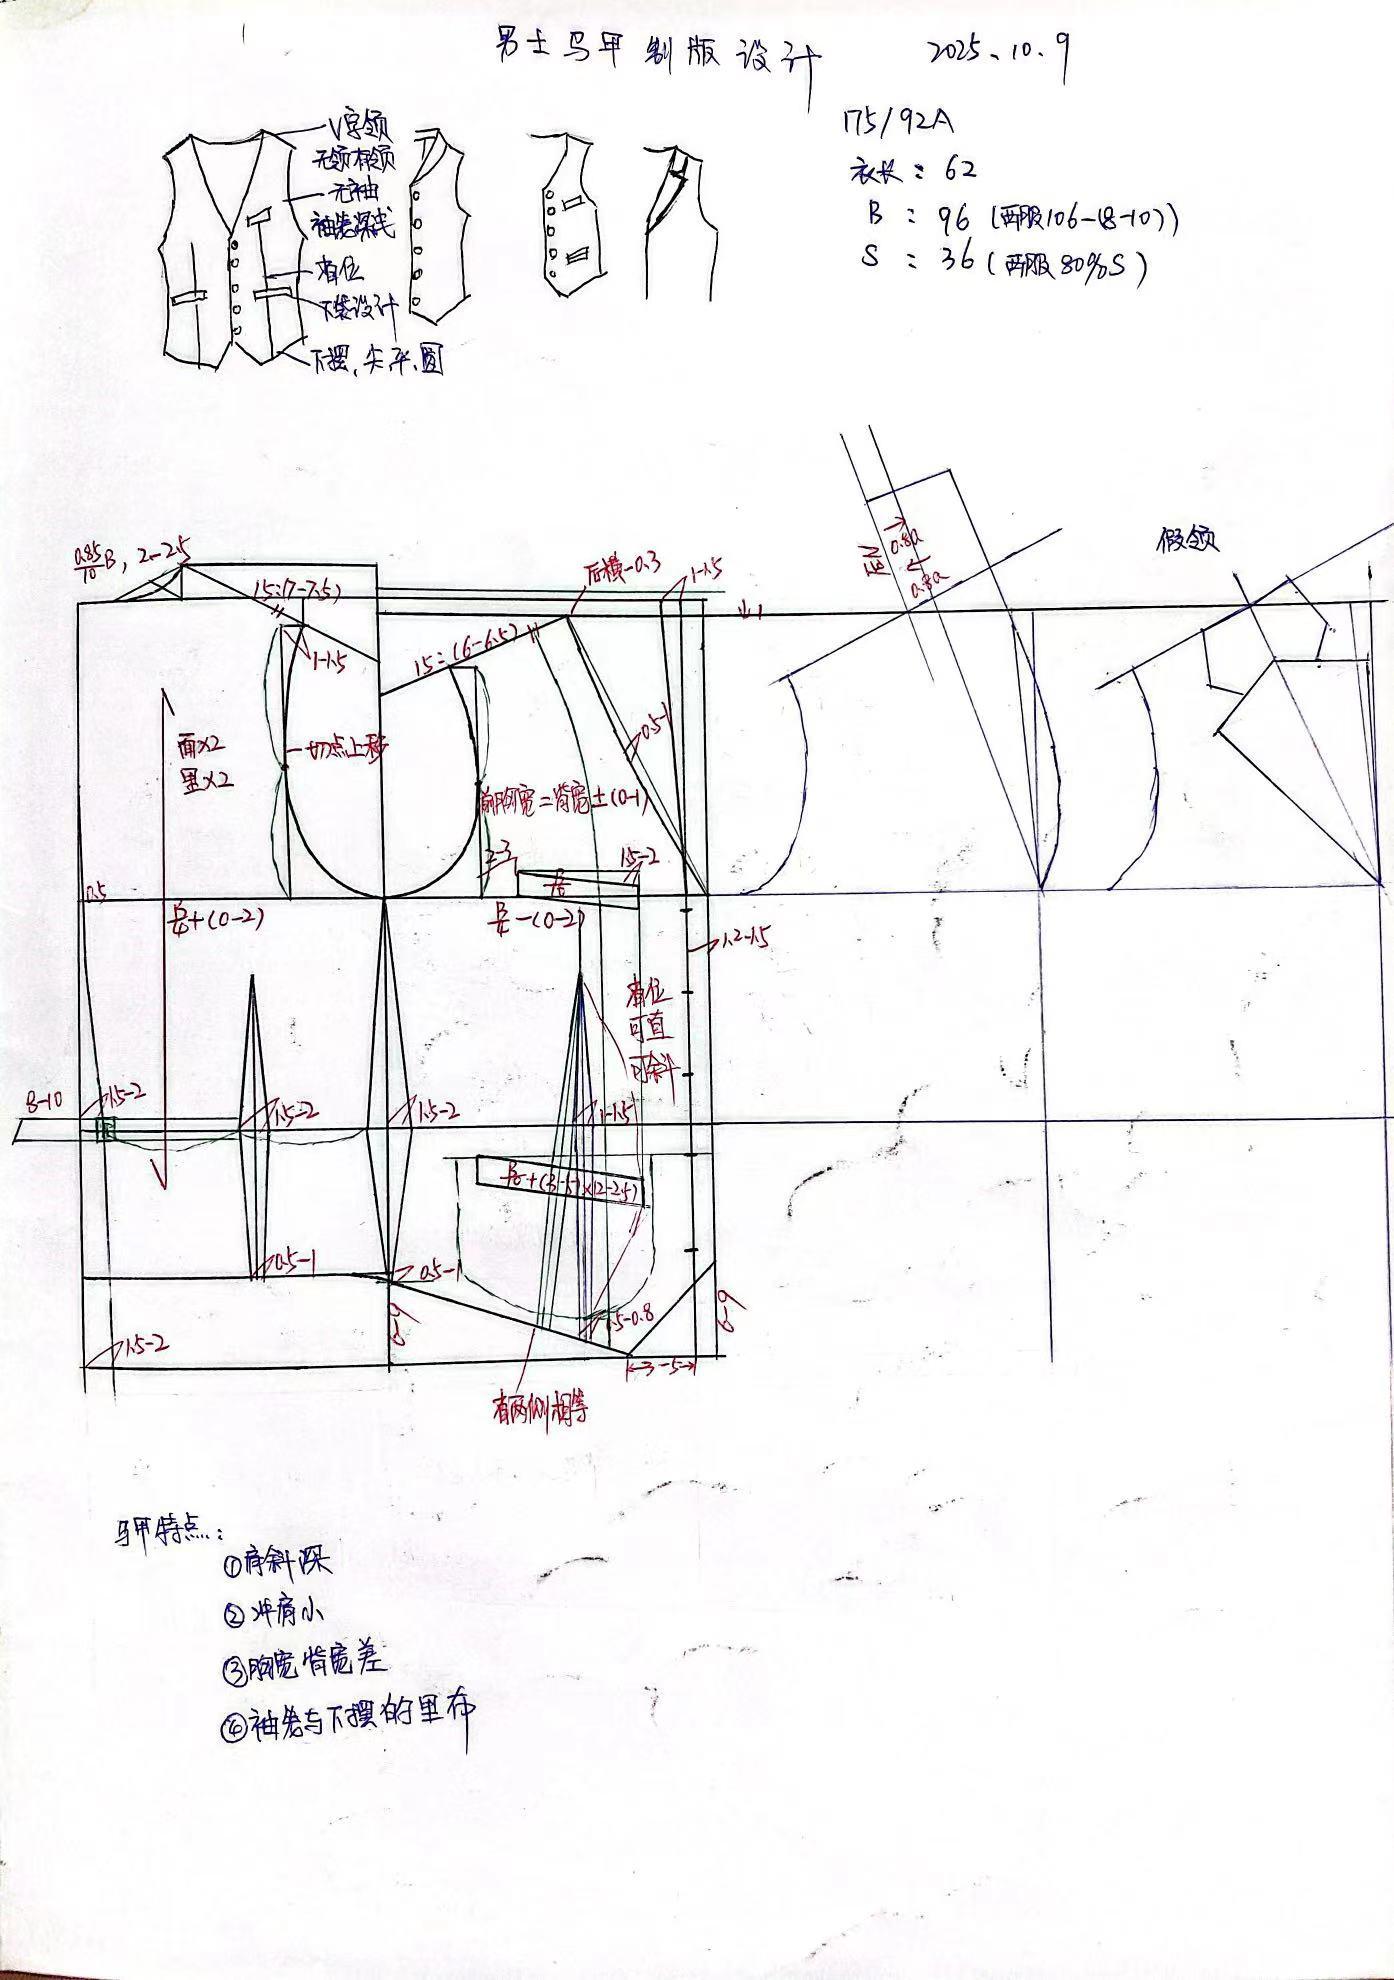 男士马甲制版设计
2025.10.9
175/92A
衣长：62
B：96（西服106-(8-10)）
S：36（西服80%S）
V字领
无领有领
无袖
袖笼深浅
省位
下袋设计
下摆，尖、平、圆
0.85/10 B，2-2.5
15:(7-7.5)
后横-0.3
1-1.5
↓1
15:(6-6.5)
1-1.5
0.5-1
0.8a
0.8a
假领
面×2
里×2
切点上移
前胸宽=背宽±(0-1)
2-3
1.5-2
0.5
B/4+(0-2)
B/4-(0-2)
1.2-1.5
省位
可直
可斜
8-10
1.5-2
1.5-2
1.5-2
1-1.5
+(3-5)×(2-2.5)
0.5-1
0.5-1
0.5-0.8
1.5-2
6-9
6-9
3-5
省两侧相等
马甲特点：
①肩斜深
②冲肩小
③胸宽背宽差
④袖笼与下摆的里布